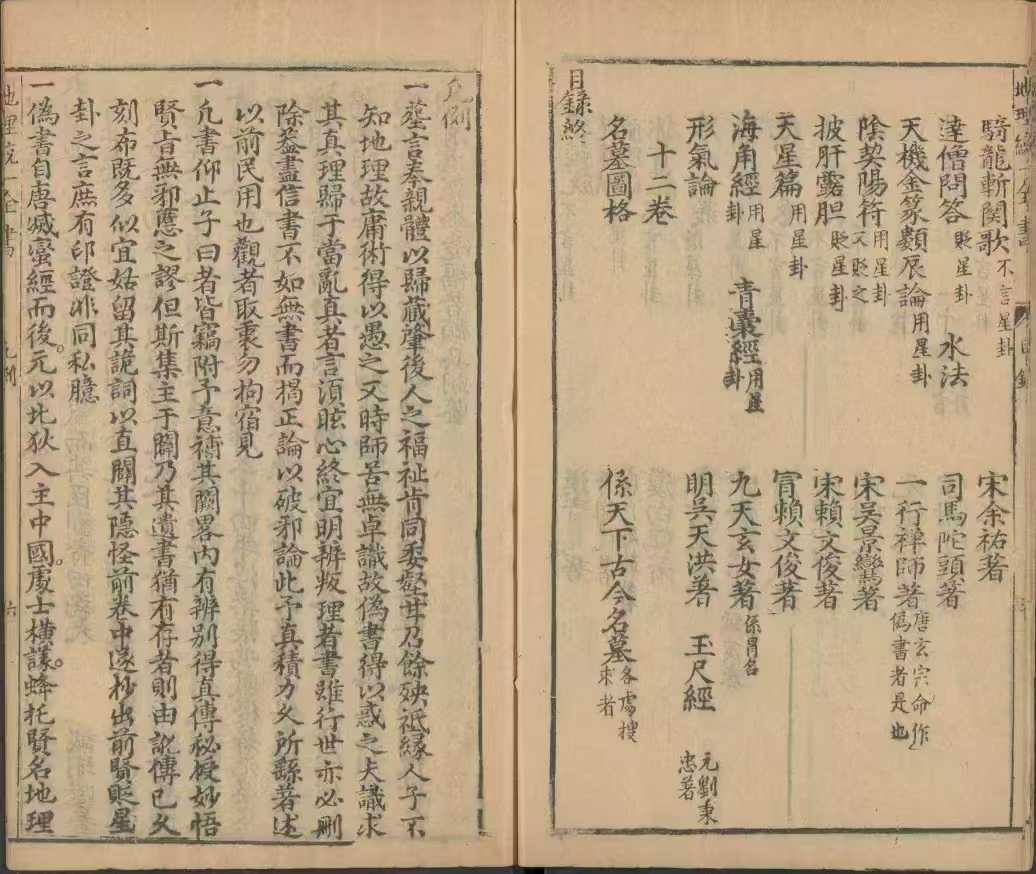 騎龍斬関歌 不言星卦 宋余祐著
達僧問答 貶星卦 水法 司馬陀頭著
天機金篆顥辰論 用星卦 一行禅師著 唐玄宗命作偽書者是也
陰契陽符 用星卦又貶之 宋吳景鸞著
披肝露胆 貶星卦 宋賴文俊著
天星篇 用星卦 冐賴文俊著
海角經 用星卦 青囊經 用星卦 九天玄女著 係冐名
形氣論 明吳天洪著 玉尺經 元劉秉忠著
十二卷
名墓圖格 係天下古今名墓 各處搜求者
目錄終
凢例
一塟言奉親體以歸藏肇後人之福祉肯同委壑甘召餘殃祗緣人子不
知地理故庸術得以愚之又時師苦無卓識故偽書得以惑之夫識求
其真理歸于當亂真者言湏眩心終宜明辨叛理者書雖行世亦必刪
除葢盡信書不如無書而揭正論以破邪論此予真積力久所繇著述
以前民用也觀者取衷勿拘宿見
一凢書仰止子曰者皆竊附予意補其闕畧内有辨别得真傳秘授妙悟
賢旨無邪慝之謬但斯集主于闢乃其遺書猶有存者則由訛傳已久
刻布既多似宜姑留其詭詞以直闢其隱怪前卷中遂抄出前賢貶星
卦之言庶有印證非同私臆
一偽書自唐滅蠻經而後元以北狄入主中國處士橫議蜂托賢名地理
地理統一全書 凢例 六